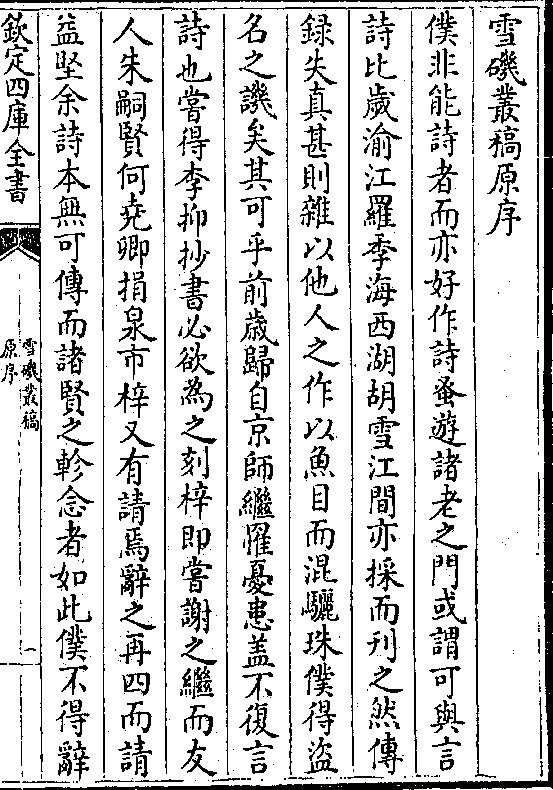 雪磯叢稿原序
僕非能詩者而亦好作詩蚤遊諸老之門或謂可與言
詩比歲渝江羅季海西湖胡雪江間亦採而刊之然傳
録失真甚則雜以他人之作以魚目而混驪珠僕得盜
名之譏矣其可乎前歳歸自京師繼罹憂患盖不復言
詩也嘗得李抑抄書必欲為之刻梓即嘗謝之繼而友
人朱嗣賢何堯卿捐泉市梓又有請焉辭之再四而請
益堅余詩本無可傳而諸賢之軫念者如此僕不得辭
欽定四庫全書
雪磯叢稿
原序
一